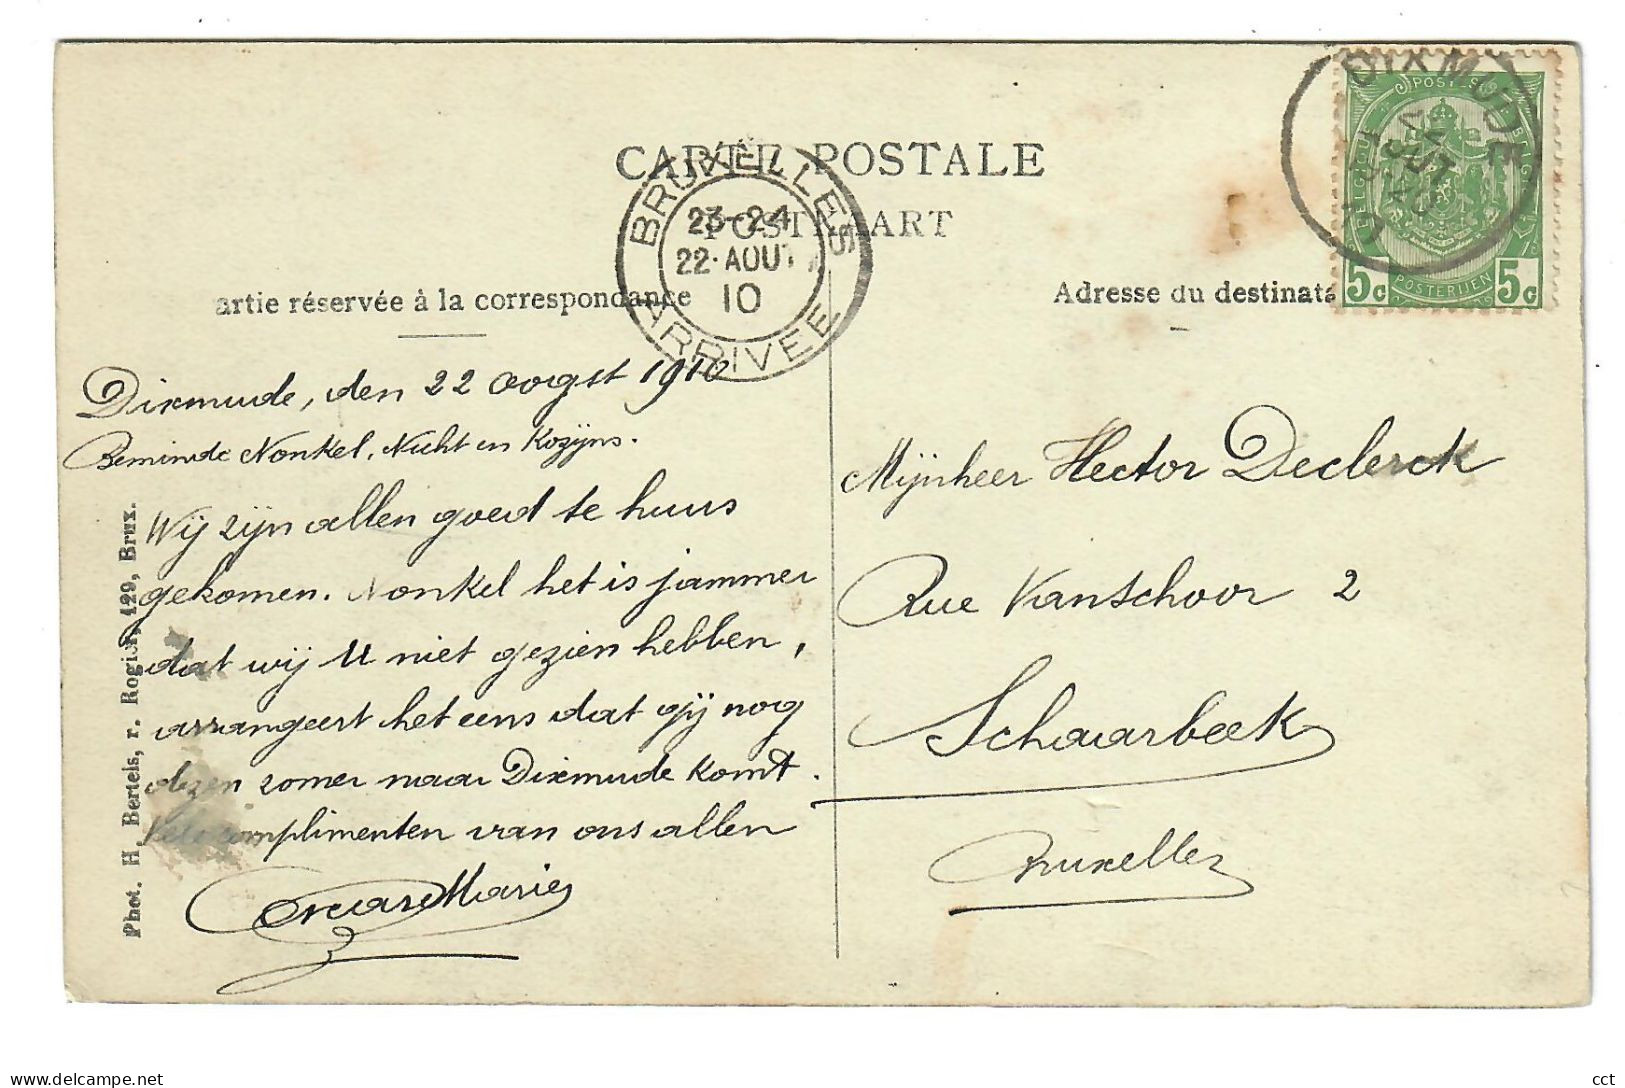 CARTE POSTALE
POSTKAART
artie réservée à la correspondance
Adresse du destinata
BRUXELLES
23-24
22 AOUT
10
ARRIVEE
DIXMUDE
POSTES
BELGIQUE
5c POSTERIJEN 5c
Dixmude, den 22 oogst 1910
Beminde Nonkel, Nicht en Kozijns.
Wij zijn allen goed te huus
gekomen. Nonkel het is jammer
dat wij U niet gezien hebben,
arrangeert het eens dat gij nog
dezen zomer naar Dixmude komt.
Vele complimenten van ons allen
Marie
Mijnheer Hector Declerck
Rue Vanschoor 2
Schaarbeek
Bruxelles
Phot. H. Bertels, r. Rogier, 129, Brux.
www.delcampe.net
cct